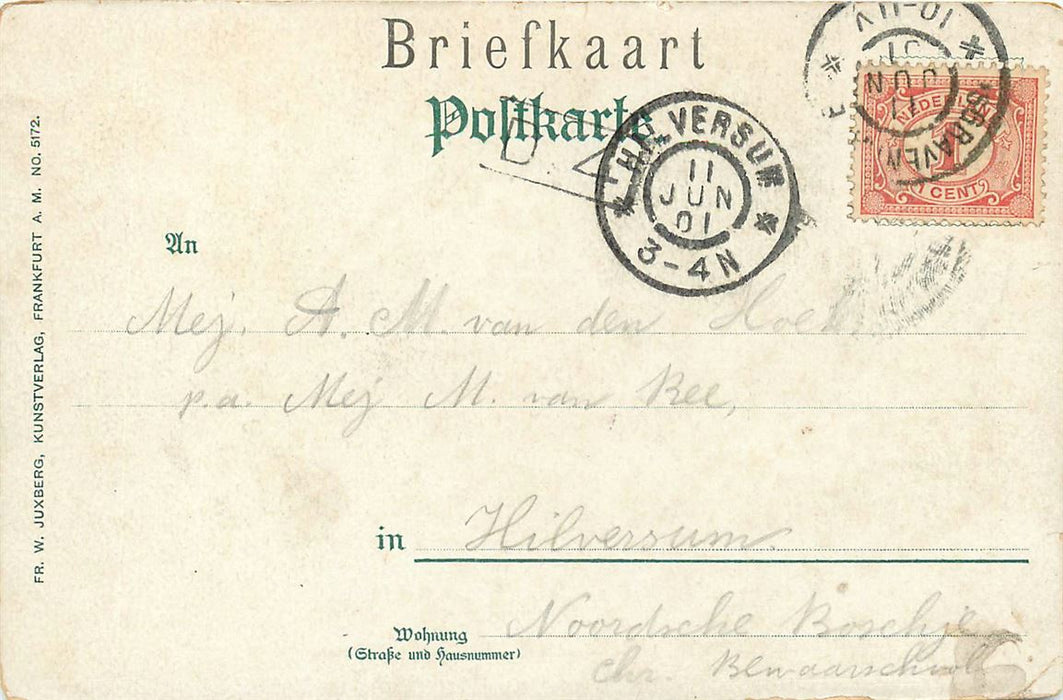 Briefkaart
Postkarte
HILVERSUM
11
JUN
01
3-4N
10-11V
11
JUN
01
NEDERLAND
1
1 CENT
An
Mej. A. M. van den Hoek
p.a. Mej M. van Ree,
in Hilversum.
Wohnung
(Straße und Hausnummer)
Noordsche Boschje
Chr. Bewaarschool
FR. W. JUXBERG, KUNSTVERLAG, FRANKFURT A. M. NO. 5172.